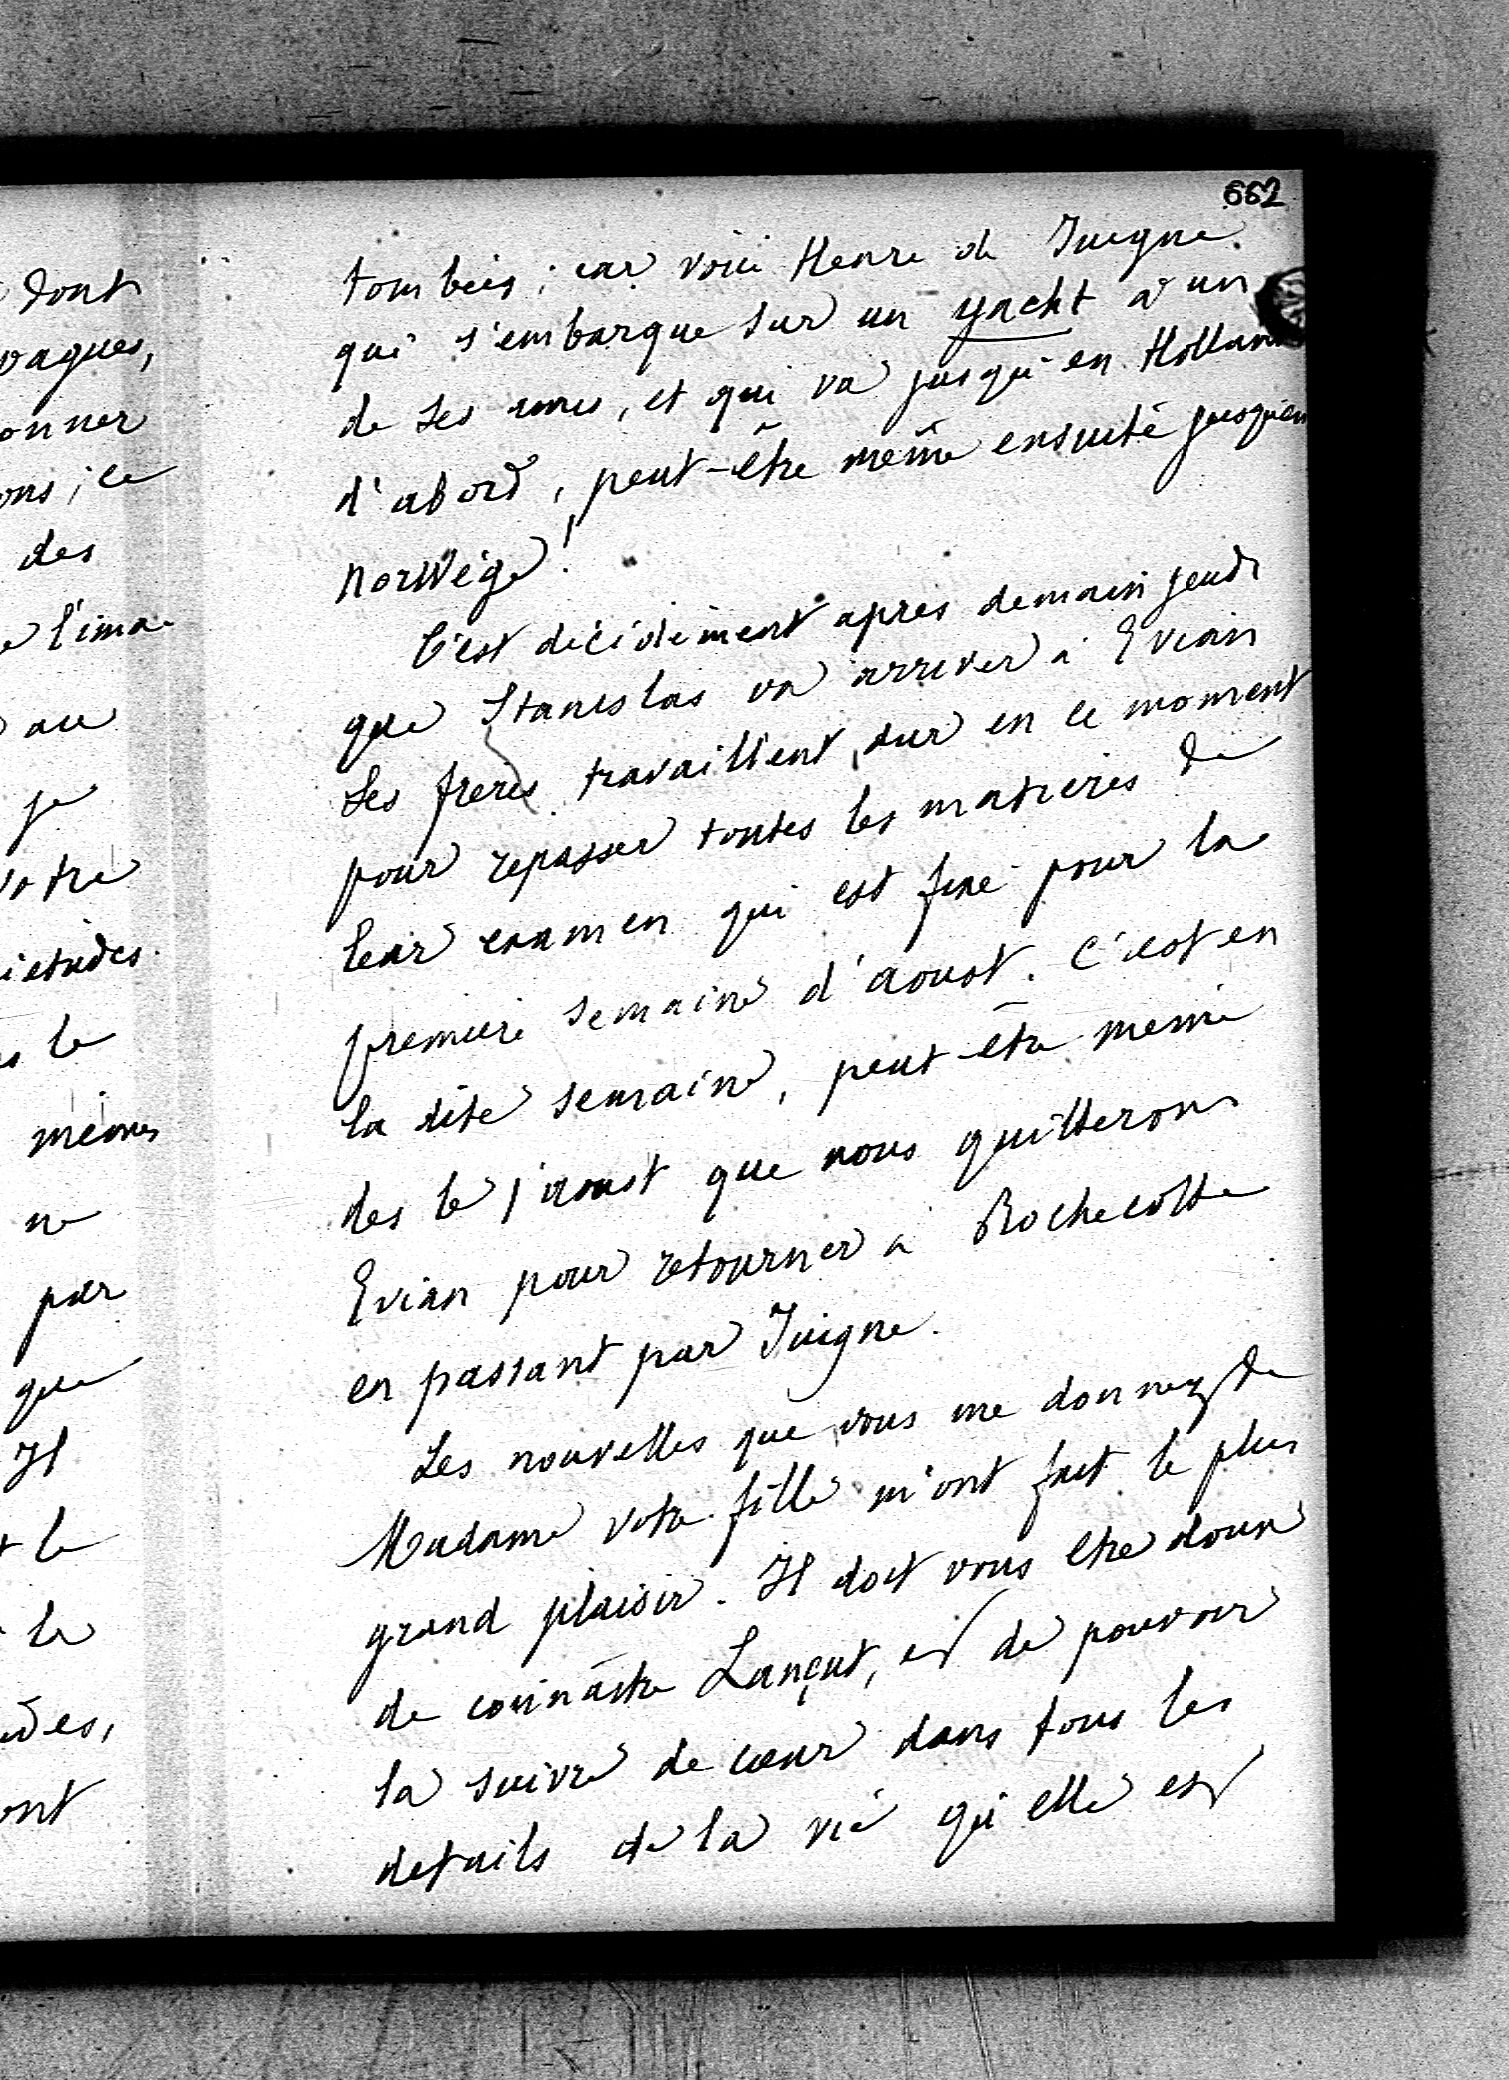 662
dont
vagues,
onner
ons ; ce
des
l'ima-
au
je
votre
ietudes.
le
mêmes
ne
par
que
Il
le
la
ont
tombées ; car voici Henri de Juigné
qui s'embarque sur un yacht à un
de ses amis, et qui va jusqu'en Holland
d'abord, peut-être même ensuite jusqu'en
Norwège !
C'est décidément après demain jeudi
que Stanislas va arriver à Evian
Ses frères travaillent dur en ce moment
pour repasser toutes les matières de
leur examen qui est fixé pour la
première semaine d'Aoust. C'est en
la dite semaine, peut-être même
dès le 1 aoust que nous quitterons
Evian pour retourner à Rochecotte
en passant par Juigné.
Les nouvelles que vous me donnez de
Madame votre fille m'ont fait le plus
grand plaisir. Il doit vous être doux
de connaître Lançut, et de pouvoir
la suivre de cœur dans tous les
détails de la vie qu'elle est